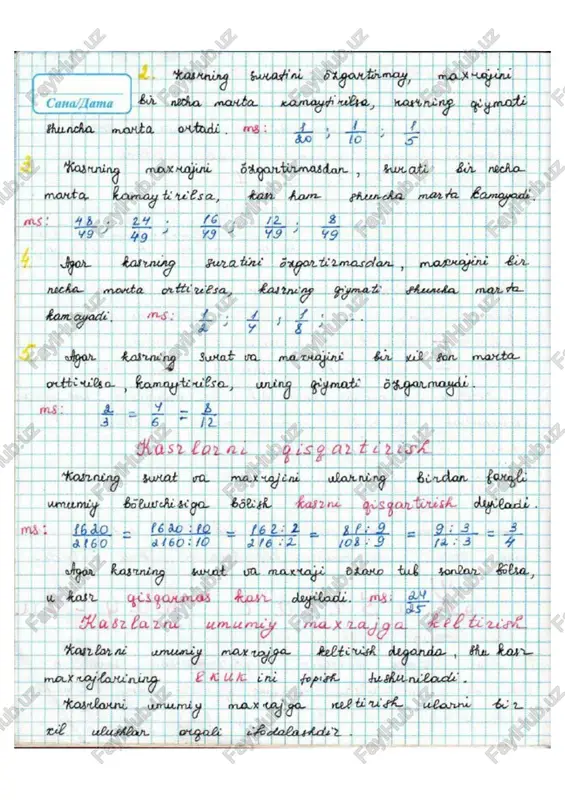 2. Kasrning suratini özgartirmay, maxrajini
Сана/Дата
bir necha marta kamaytirilsa, kasrning qiymati
shuncha marta ortadi. ms: 1/20 ; 1/10 ; 1/5
3. Kasrning maxrajini özgartirmasdan, surati bir necha
marta kamaytirilsa, kasr ham shuncha marta kamayadi.
ms: 48/49 ; 24/49 ; 16/49 ; 12/49 ; 8/49
4. Agar kasrning suratini özgartirmasdan, maxrajini bir
necha marta orttirilsa, kasrning qiymati shuncha marta
kamayadi. ms: 1/2 ; 1/4 ; 1/8 ; ...
5. Agar kasrning surat va maxrajini bir xil son marta
orttirilsa, kamaytirilsa, uning qiymati özgarmaydi.
ms: 2/3 = 4/6 = 8/12
Kasrlarni qisqartirish
Kasrning surat va maxrajini ularning birdan farqli
umumiy böluvchisiga bölish kasrni qisqartirish deyiladi.
ms: 1620/2160 = 1620:10/2160:10 = 162:2/216:2 = 81:9/108:9 = 9:3/12:3 = 3/4
Agar kasrning surat va maxraji özaro tub sonlar bölsa,
u kasr qisqarmas kasr deyiladi. ms: 24/25
Kasrlarni umumiy maxrajga keltirish
Kasrlarni umumiy maxrajga keltirish deganda, shu kasr
maxrajlarining EKUK ini topish tushuniladi.
Kasrlarni umumiy maxrajga keltirish ularni bir
xil ulushlar orqali ifodalashdir.
FaylHub.uz